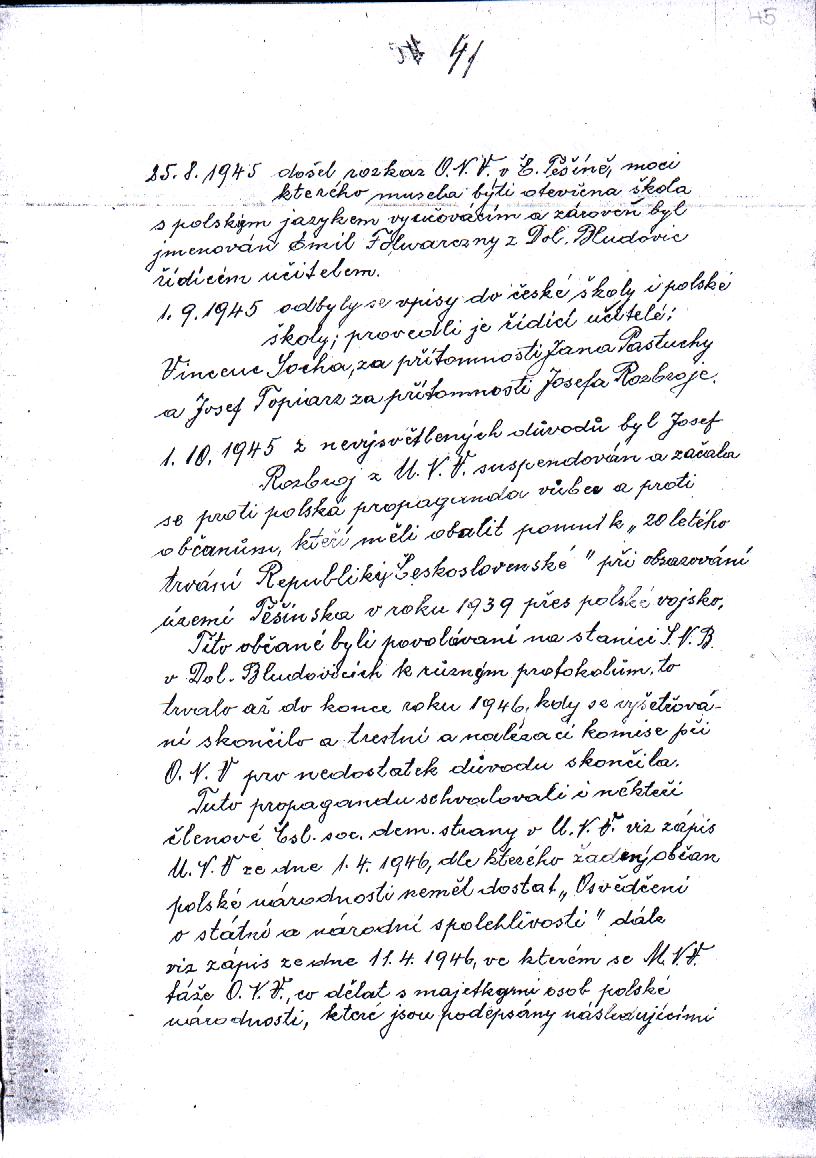 45
41
25.8.1945 došel rozkaz O.N.V. v Č. Těšíně, moci
kterého musela býti otevřena škola
s polským jazykem vyučovacím a zároveň byl
jmenován Emil Folwarczny z Dol. Bludovic
řídícím učitelem.
1.9.1945 odbyly se vpisy do české školy i polské
školy; provedli je řídící učitelé:
Vincenc Socha, za přítomnosti Jana Pastuchy
a Josef Topiarz za přítomnosti Josefa Rozbroje.
1.10.1945 z nevysvětlených důvodů byl Josef
Rozbroj z M.N.V. suspendován a začala
se proti polská propaganda vůbec a proti
občanům, kteří měli obalit pomník „20 letého
trvání Republiky Československé" při obsazování
území Těšínska v roku 1939 přes polské vojsko.
Tito občané byli povoláváni na stanici S.N.B.
v Dol. Bludovicích k různým protokolům, to
trvalo až do konce roku 1946, kdy se vyšetřová-
ní skončilo a trestní a nalézací komise při
O.N.V pro nedostatek důvodu skončila.
Tuto propagandu schvalovali i někteří
členové Čsl. soc. dem. strany v M.N.V. viz zápis
M.N.V ze dne 1.4.1946, dle kterého žadený občan
polské národnosti neměl dostat „Osvědčení
o státní a národní spolehlivosti" dále
viz zápis ze dne 11.4.1946, ve kterém se M.N.V.
táže O.N.V., co dělat s majetkami osob polské
národnosti, které jsou podepsány následujícími